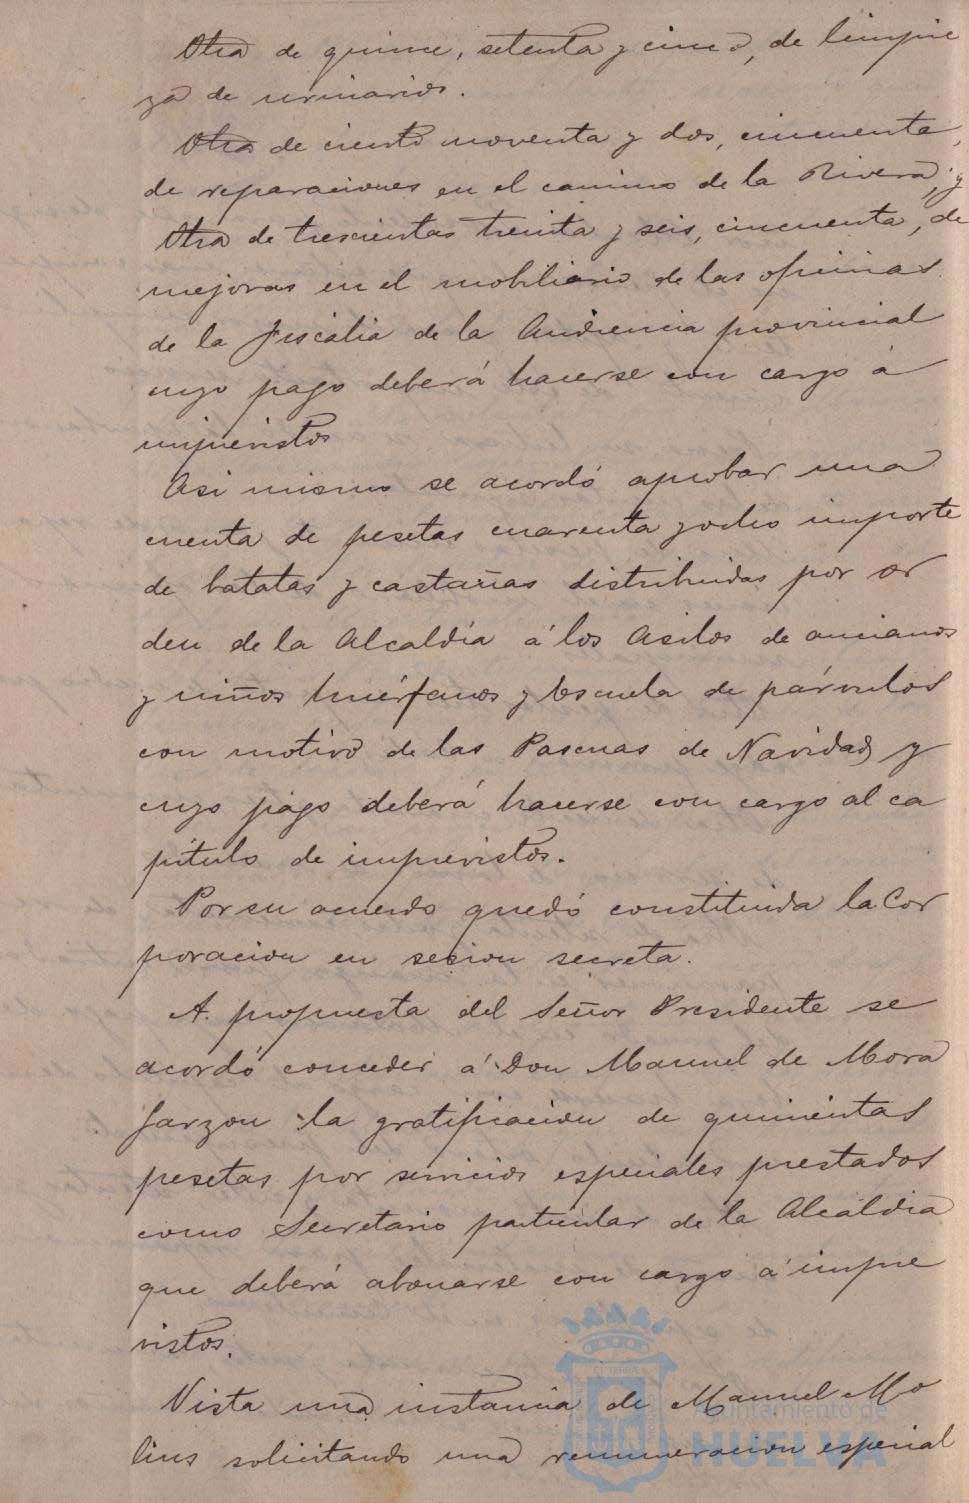 Otra de quince, setenta y cinco, de limpie
za de urinarios.
Otra de ciento noventa y dos, cincuenta,
de reparaciones en el camino de la Rivera, y
Otra de trescientas treinta y seis, cincuenta, de
mejoras en el mobiliario de las oficinas
de la Fiscalia de la Audiencia provincial
cuyo pago deberá hacerse con cargo á
imprevistos
Asi mismo se acordó aprobar una
cuenta de pesetas cuarenta y ocho importe
de batatas y castañas distribuidas por or
den de la Alcaldía á los Asilos de ancianos
y niños huérfanos y Escuela de párvulos
con motivo de las Pascuas de Navidad y
cuyo pago deberá hacerse con cargo al ca
pítulo de imprevistos.
Por su acuerdo quedó constituida la Cor
poracion en sesion secreta.
A propuesta del Señor Presidente se
acordó conceder á Don Manuel de Mora
Garzon la gratificacion de quinientas
pesetas por servicios especiales prestados
como Secretario particular de la Alcaldia
que deberá abonarse con cargo á impre
vistos.
Vista una instancia de Manuel Mo
lins solicitando una remuneracion especial
Ayuntamiento de
HUELVA